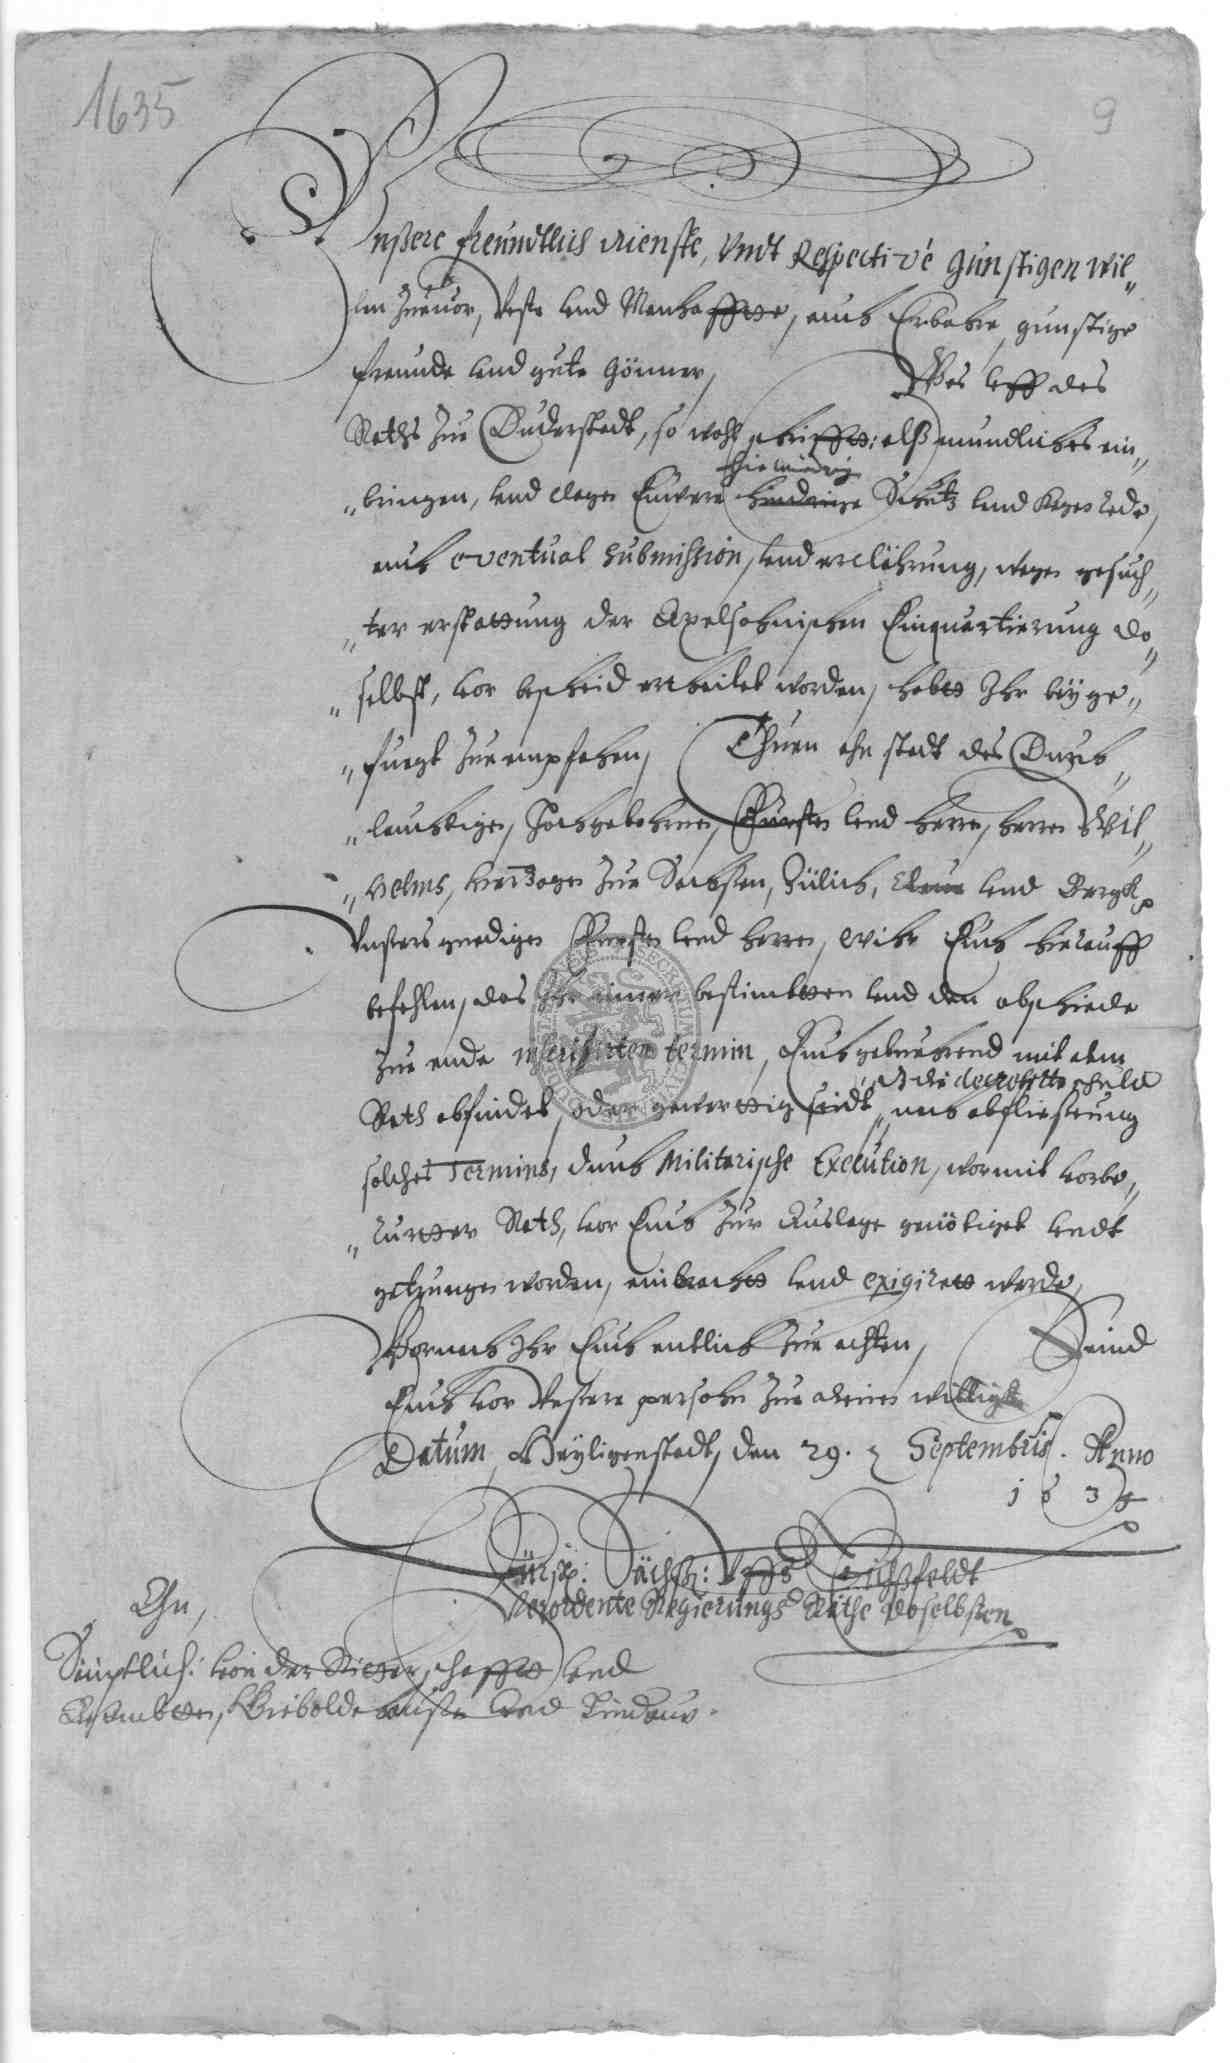 1635
9
Unßere freundtlich dienste, Undt Respectivè gunstigen wil„
len zuuor, Veste und Manhaffte, auch Erbahre gunstige
freunde und gute Gönner, Was uff des
Raths zue Duderstadt, so wohl schrifftt: alß mundliches ein„
„bringen, und clagen Ewere hiewiedrige Schutz und Kegenrede,
auch eventual submission, und erclährung, wegen gesuch„
„ter erstattung der Axelsohnischen Einquartierung do„
„selbst, vor bescheid ertheilet worden, habtt Ihr beyge„
„fuegt zue empfahen, Thuen ahn stadt des Durch„
„lauchtigen, Hochgebohrnen, Fursten und herrn, herrn Wil„
„helms, Hertzogen zue Sachßen, Jülich, Cleue und Bergk p
Unsers gnedigen Fursten und herren, wihr Euch hierauff
befehlen, das Ihr innen bestimbtten und den abschiede
zue ende inseribirten termin, Euch gebuehrend mit dem
Rath abfindet, oder gewerttig seidt, das die decretirte schuld
nach abfließung
solches Termins, durch Militarische Execution, wormit vorbe„
„rurtter Rath, vor Euch zur Auslage genötiget undt
getzwungen worden, einbrachtt und exigirett werde,
Wornach Ihr Euch entlich zue achten, Seind
Euch vor Unsere persohn zue dienen willigk
Datum Heyligenstadt, den 29. Septembris. Anno
163
Fürstl: Sächß: Uffs Eichßfeldt
Verordente Regierungs Räthe doselbsten
Ahn,
Sämptlich: von der Ritterschafftt und
Ambtten, Gieboldehausen und Lindaw.